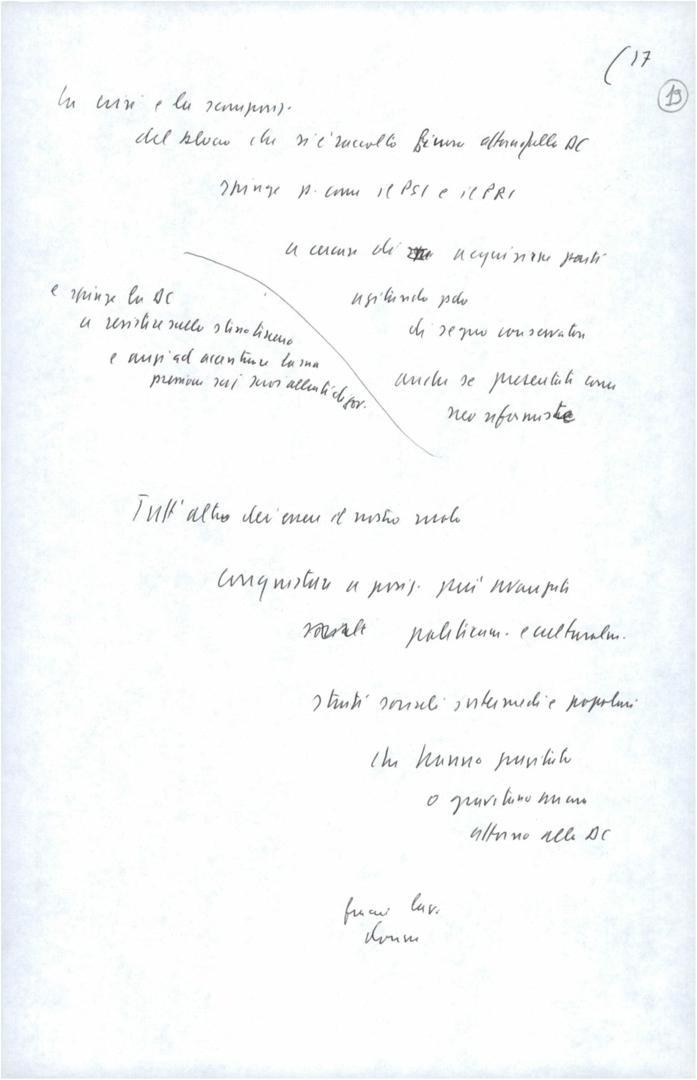 (17
19
La crisi e la scomposiz.
del blocco che si è raccolto finora attorno alla DC
spinge p. come il PSI e il PRI
a cercare di acquisirne parti
agitando pdo
di segno conservatori
anche se presentati come
neo riformiste
e spinge la DC
a resistere sullo stesso terreno
e anzi ad accentuare la sua
pressione sui suoi alleati di gov.
Tutt'altro dev'essere il nostro ruolo
conquistare a posiz. più avanzate
politicam. e culturalm.
strati sociali intermedi e popolari
che hanno gravitato
o gravitano ancora
attorno alla DC
lav.
donne